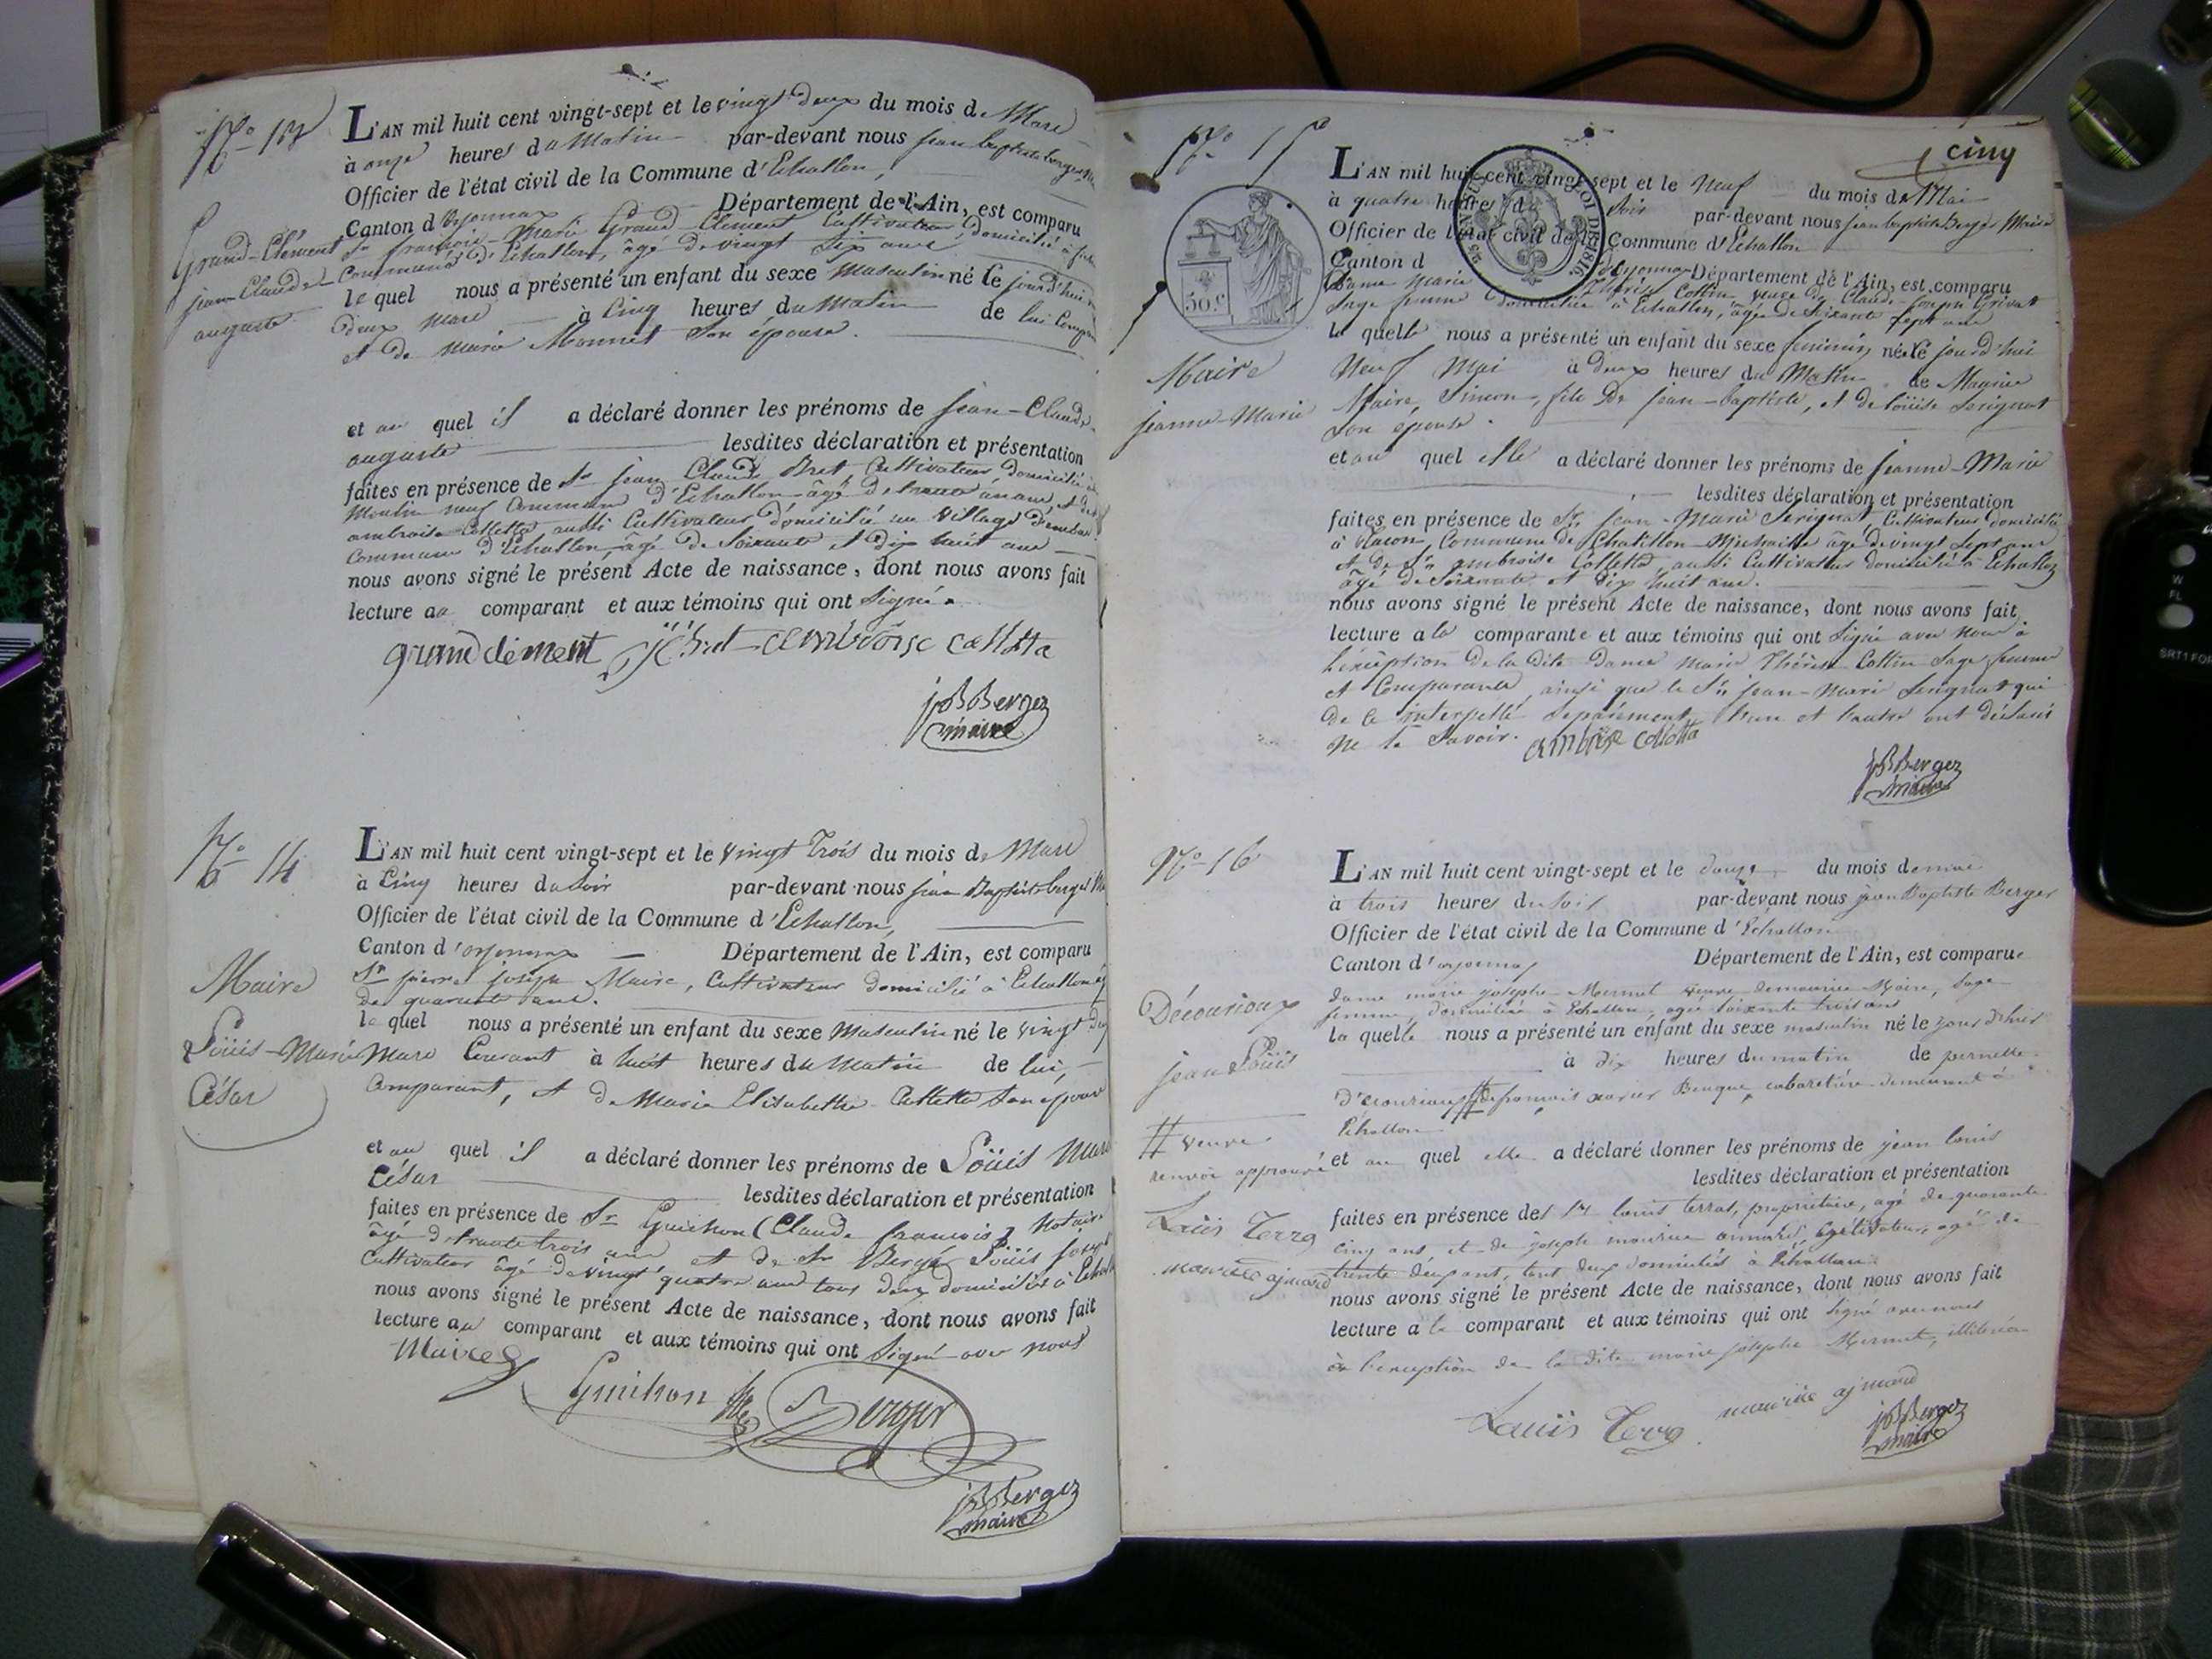 N.o 13
L'AN mil huit cent vingt-sept et le vingt deux du mois de Mars
à onze heures du Matin par-devant nous jean baptiste berger
Officier de l'état civil de la Commune d'Echallon,
Canton d'Oyonnax Département de l'Ain, est comparu
Sr françois-Marie Grand-Clément Cultivateur, domicilié à
Commune d'Echallon, âgé de vingt six ans
le quel nous a présenté un enfant du sexe Masculin né le jourd'hui
deux Mars à Cinq heures du Matin de lui
et de Marie Monnet Son épouse.
Grand-Clément
jean-Claude
auguste
et au quel il a déclaré donner les prénoms de jean-Claude
auguste lesdites déclaration et présentation
faites en présence de Sr jean Claude Bret Cultivateur, domicilié
Moulin neuf Commune d'Echallon âgé de trente ans, et de
ambroise Colletta aussi Cultivateur domicilié au Village
Commune d'Echallon, âgé de Soixante et dix huit ans
nous avons signé le présent Acte de naissance, dont nous avons fait
lecture au comparant et aux témoins qui ont Signé.
grand clément ambroise colletta
jB Berger
maire
N.o 14
L'AN mil huit cent vingt-sept et le vingt trois du mois de Mars
à Cinq heures du Soir par-devant nous jean Baptiste berger
Officier de l'état civil de la Commune d'Echallon,
Canton d'oyonnax Département de l'Ain, est comparu
Sr pierre joseph Maire, Cultivateur domicilié à Echallon
de quarante ans.
le quel nous a présenté un enfant du sexe Masculin né le vingt
Mars Courant à huit heures du Matin de lui,
Comparant, et de Marie Elisabethe Colletta Son épouse
Maire
Loüis-Marie
César
et au quel il a déclaré donner les prénoms de Loüis Marie
César lesdites déclaration et présentation
faites en présence de Sr Guichon (Claude françois) Notaire
âgé de trente trois ans et de Sr Berger Loüis joseph
Cultivateur âgé de vingt quatre ans tous deux domiciliés à
nous avons signé le présent Acte de naissance, dont nous avons fait
lecture au comparant et aux témoins qui ont Signé avec nous
Maire
Guichon Berger
jB Berger
maire
cinq
N.o 15
L'AN mil huit cent vingt-sept et le Neuf du mois de Mai
à quatre heures du Soir par-devant nous jean baptiste Berger Maire
Officier de l'état civil de la Commune d'Echallon
Canton d'oyonnax Département de l'Ain, est comparu
Dame Marie Thérèse Collin veuve de Claude-joseph Grivat
Sage femme domiciliée à Echallon, âgée de Soixante Sept ans
la quelle nous a présenté un enfant du sexe féminin, né le jourd'hui
Neuf Mai à deux heures du Matin de
Maire, Simon, fils de jean-baptiste, et de loüise Serignat
Son épouse.
30 c.
LOI DE 1816
Maire
jeanne-Marie
et au quel elle a déclaré donner les prénoms de jeanne-Marie
lesdites déclaration et présentation
faites en présence de Sr jean-Marie Serignat, Cultivateur domicilié
à Commune de Chatillon Michaille âgé de vingt Sept ans
et de Sr ambroise Colletta, aussi Cultivateur domicilié à Echallon
âgé de Soixante et dix huit ans.
nous avons signé le présent Acte de naissance, dont nous avons fait
lecture a la comparante et aux témoins qui ont Signé avec nous à
l'exception de la dite Dame Marie Thérèse Collin Sage femme
et Comparante, ainsi que le Sr jean-Marie Serignat qui
de ce interpellé Séparément l'un et l'autre ont déclaré
ne le Savoir. ambroise colletta
jB Berger
maire
N.o 16
L'AN mil huit cent vingt-sept et le douze du mois de mai
à trois heures du soir par-devant nous jean Baptiste Berger
Officier de l'état civil de la Commune d'Echallon
Canton d'oyonnax Département de l'Ain, est comparue
dame marie josephe Mermet veuve de maurice Maire, Sage
femme, domiciliée à Echallon, agée soixante trois ans
la quelle nous a présenté un enfant du sexe masculin né le jour d'hier
à dix heures du matin de pernette
d'écourioux # de françois xavier Benque, cabaretière demeurant à
Echallon
Décourioux
jean Loüis
# veuve
renvoi approuvé
Loüis Terra
maurice aymard
et au quel elle a déclaré donner les prénoms de jean louis
lesdites déclaration et présentation
faites en présence des Srs louis terrat, propriétaire, agé de quarante
cinq ans, et de joseph maurice aymard, Cultivateur, agé de
trente deux ans, tout deux domiciliés à Echallon
nous avons signé le présent Acte de naissance, dont nous avons fait
lecture a la comparant et aux témoins qui ont signé avec nous
à l'exception de la dite marie josephe Mermet, illitérée
Loüis Terra maurice aymard
jB Berger
maire